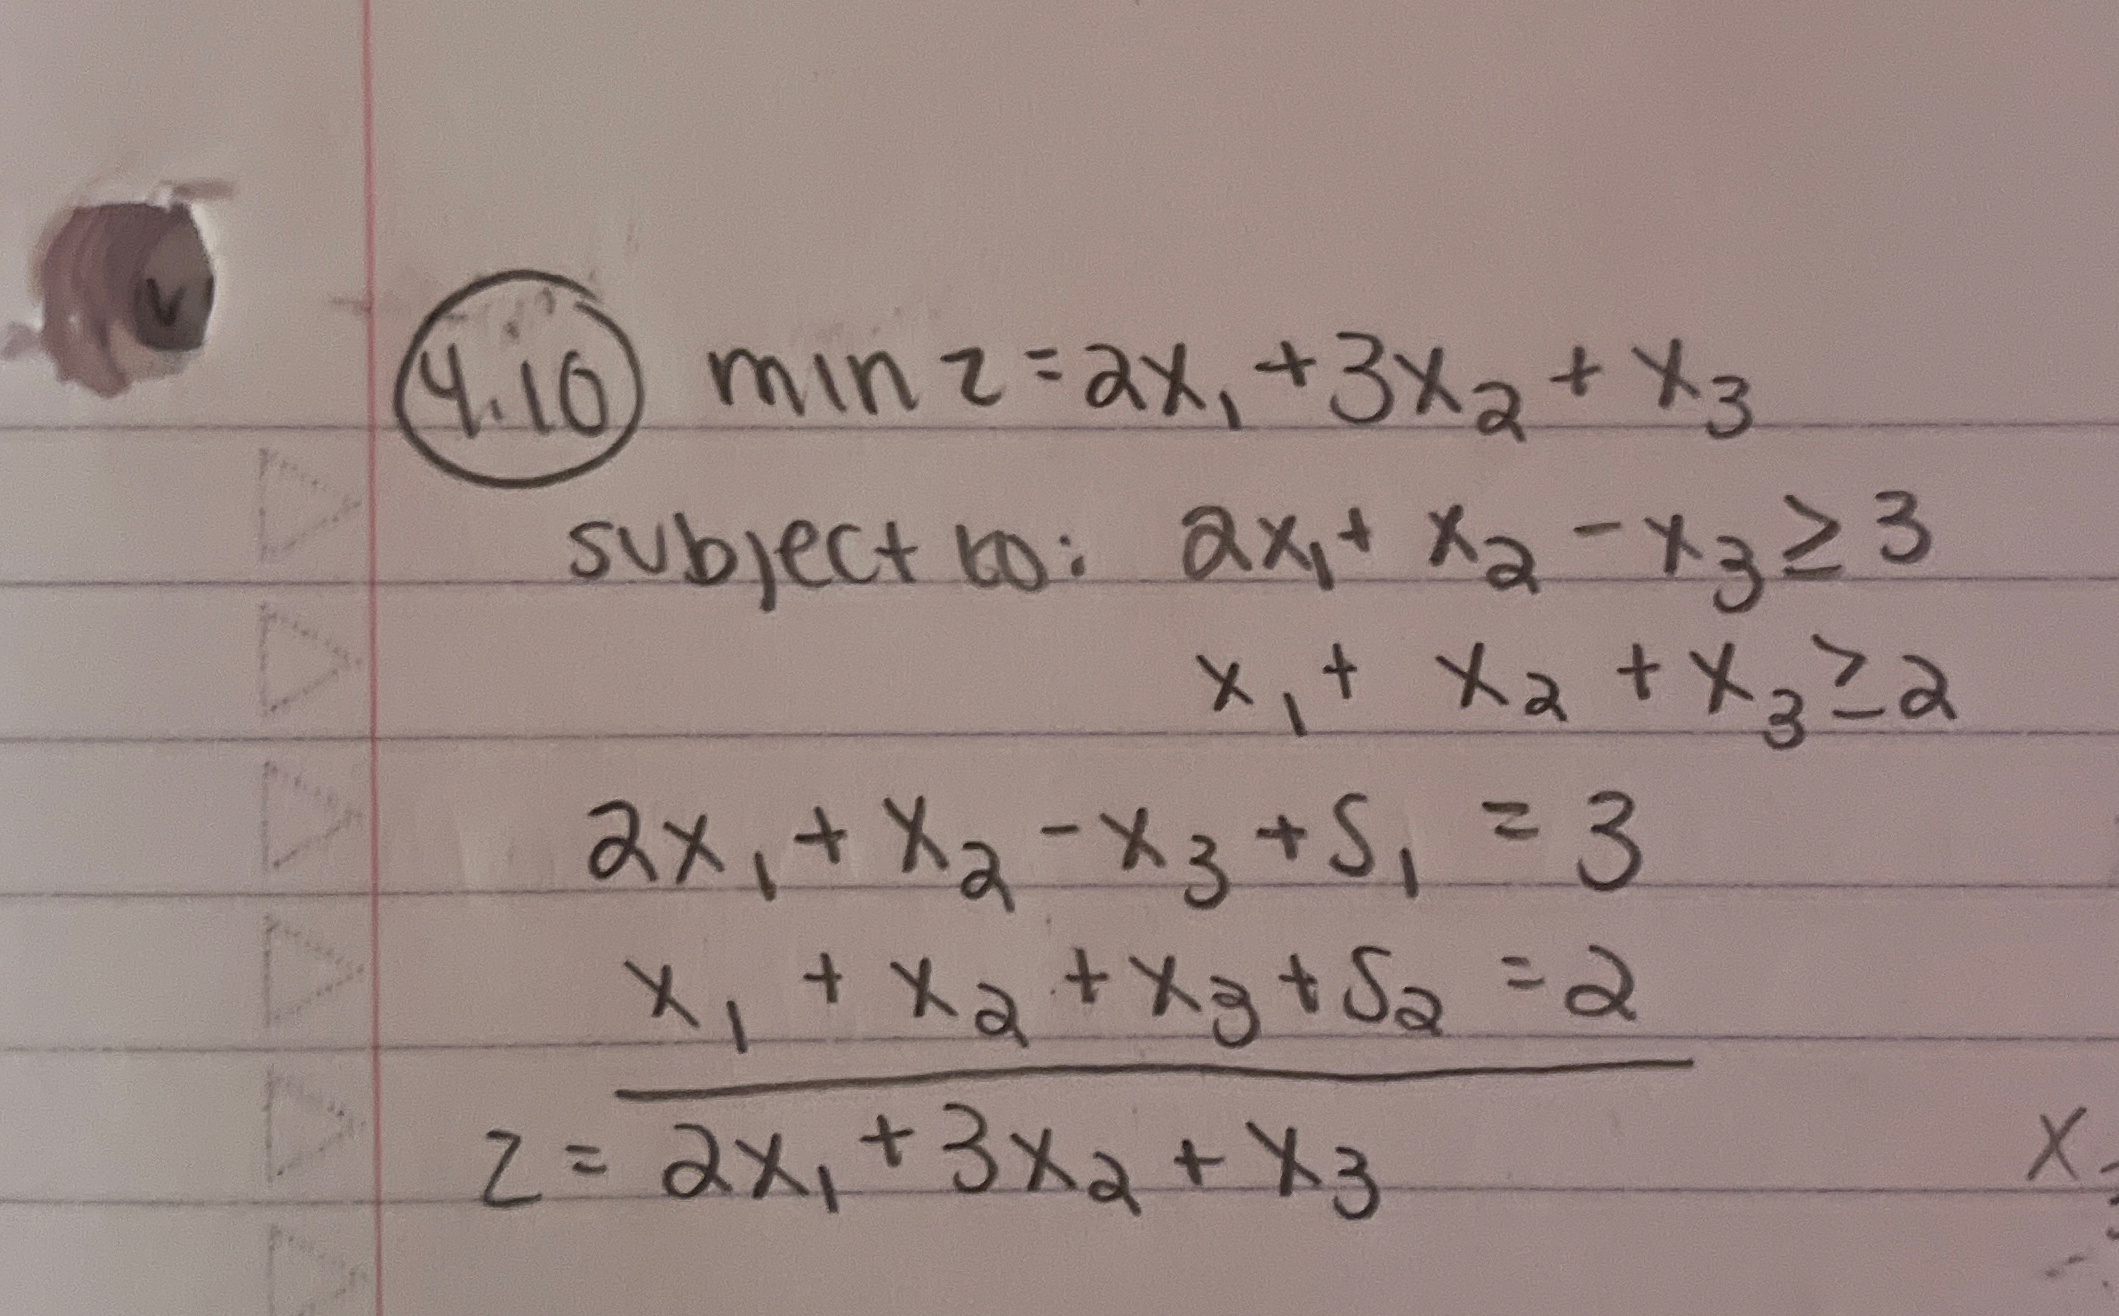 4.10 min z = 2x₁ + 3x₂ + x₃
subject to: 2x₁ + x₂ - x₃ ≥ 3
x₁ + x₂ + x₃ ≥ 2
2x₁ + x₂ - x₃ + S₁ = 3
x₁ + x₂ + x₃ + S₂ = 2
z = 2x₁ + 3x₂ + x₃
x